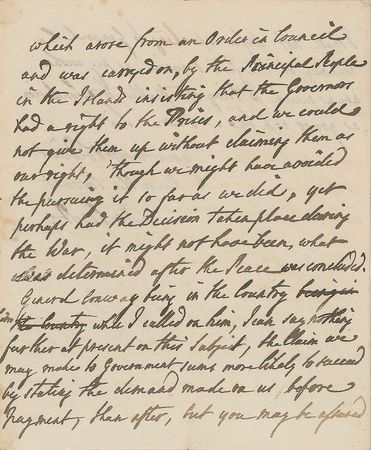 which arose from an Order in Council
and was carryed on, by the Principal People
in the Islands insisting that the Governors
had a right to the Prizes, and we could
not give them up without claiming them as
our right, 'though we might have avoided
the pursuing it so far as we did, yet
perhaps had the Decision taken place during
the War, it might not have been, what
was determined after the Peace was concluded.
General Conway being in the Country being in
the Country while I called on him, I can say nothing
further at present on this Subject, the Claim we
may make to Government seems more likely to succeed
by stating the demand made on us before
Payment, than after, but you may be assured